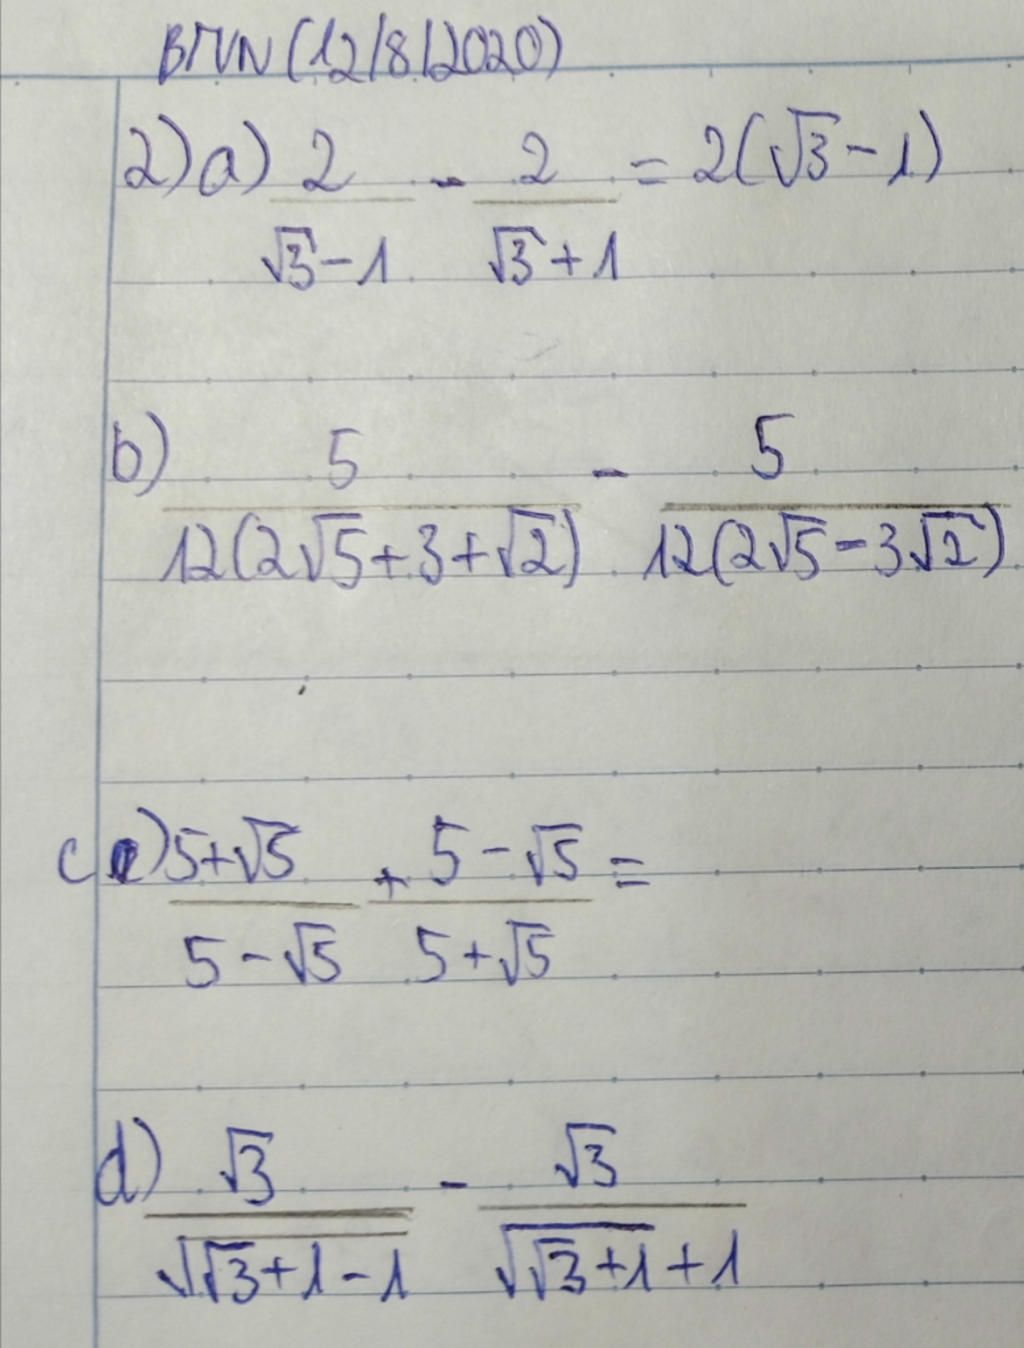 BTVN (12/8/2020)
2) a) 2/(√3-1) - 2/(√3+1) = 2(√3-1)
b) 5/(12(2√5+3+√2)) - 5/(12(2√5-3√2))
c) (5+√5)/(5-√5) + (5-√5)/(5+√5) =
d) √3/(√(√3+1)-1) - √3/(√(√3+1)+1)